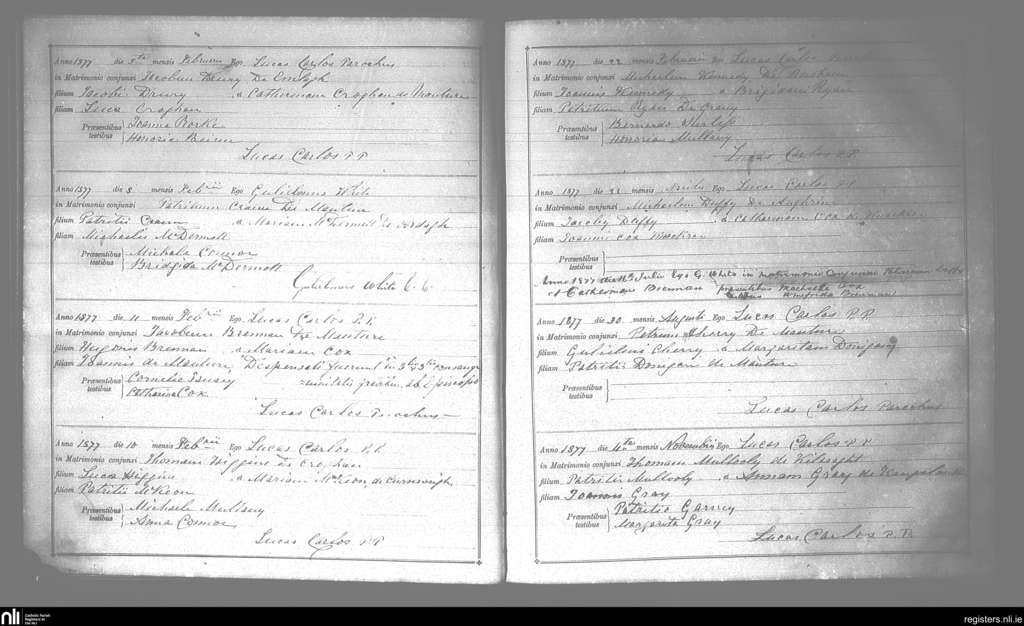 Anno 1877 die 5ta mensis Februarii Ego Lucas Carlos Parochus
in Matrimonio conjunxi Jacobum Drury De
filium Jacobi Drury a Catherinam Croghan de Mantua
filiam Luca Croghan
Præsentibus testibus Joanna Rorke
Honoria Beirne
Lucas Carlos P.P.
Anno 1877 die 8 mensis Feb Ego Gulielmus White
in Matrimonio conjunxi Patritium Crann De Mantua
filium Patritii Crann a Mariam McDermott de
filiam Michaelis McDermott
Præsentibus testibus Michala Connor
Bridgida McDermott
Gulielmus White C.C.
Anno 1877 die 11 mensis Feb Ego Lucas Carlos P.P.
in Matrimonio conjunxi Jacobum Brennan De Mantua
filium Hugonis Brennan a Mariam Cox
filiam Joannis de Mantua, Dispensati fuerunt in 3 consangu
Præsentibus testibus Cornelio
Catharina Cox
Lucas Carlos Parochus
Anno 1877 die 10 mensis Feb Ego Lucas Carlos P.P.
in Matrimonio conjunxi Thomam Higgins de Croghan
filium Luca Higgins a Mariam McKeon de
filiam Patritii McKeon
Præsentibus testibus Michaele Mullany
Anna Connor
Lucas Carlos P.P.
Anno 1877 die 22 mensis Februarii Ego Lucas Carlos
in Matrimonio conjunxi Michaelem Kennedy De
filium Joannis Kennedy a Brigidam Ryan
filiam Patritium Ryan De
Præsentibus testibus Bernardo
Honoria Mullany
Lucas Carlos P.P.
Anno 1877 die 22 mensis Ego Lucas Carlos P.P.
in Matrimonio conjunxi Michaelem Duffy De Aughrim
filium Duffy a Catherinam Cox de
filiam Joannis Cox
Præsentibus testibus
Anno 1877 Julii Ego G. White in matrimonio conjunxi
et Catherinam Brennan præsentibus Michaele Cox
testibus Winifrida Brennan
Anno 1877 die 30 mensis Augusti Ego Lucas Carlos P.P.
in Matrimonio conjunxi Petrum Cherry De Mantua
filium Gulielmi Cherry a Margaritam Donigan
filiam Patritii Donigan de Mantua
Præsentibus testibus
Lucas Carlos Parochus
Anno 1877 die 4ta mensis Novembris Ego Lucas Carlos P.P.
in Matrimonio conjunxi Thomam Mullooly de
filium Patritii Mullooly a Annam Gray de
filiam Joannis Gray
Præsentibus testibus Patritio Garvey
Margarita Gray
Lucas Carlos P.P.
nli
Catholic Parish
Registers at
the NLI
registers.nli.ie